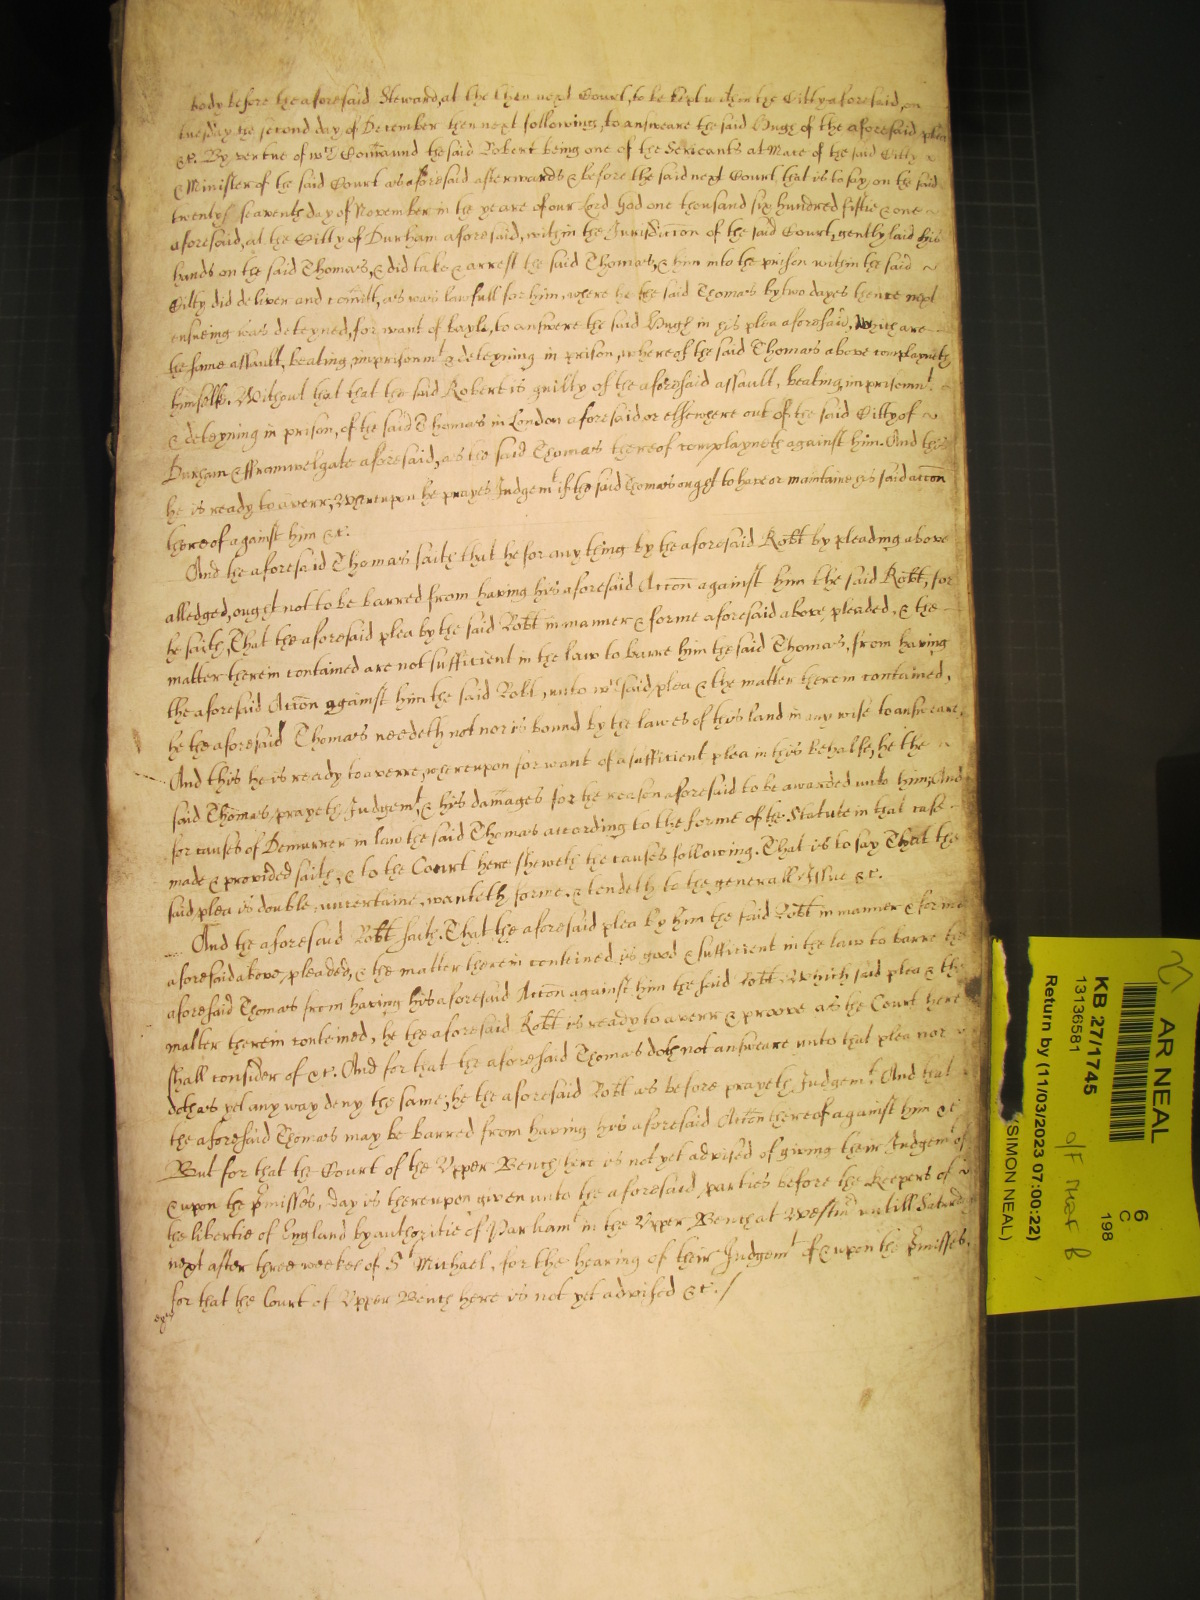 body before the aforesaid Steward, at the then next Court, to be kept within the Citty aforesaid, on
tuesday the second day of December then next following, to answeare the said Hugh of the aforesaid plea
&c. By vertue of wch Comaund the said Robert being one of the Serieants at Mace of the said Citty
& Minister of the said Court as aforesaid afterwards & before the said next Court, that is to say, on the said
twenty seaventh day of November in the yeare of our Lord God one thousand six hundred fiftie & one
aforesaid, at the Citty of Durham aforesaid, within the Jurisdiccon of the said Court, gently laid his
hands on the said Thomas, & did take & arrest the said Thomas, & him into the prison within the said
Citty did deliver and comitt, as was lawfull for him, where he the said Thomas by two dayes thence next
ensueing was deteyned, for want of bayle, to answere the said Hugh in his plea aforesaid, Which are
the same assault, beating, imprisonmt & deteyning in prison, whereof the said Thomas above complayneth
himselfe. Without that that the said Robert is guilty of the aforesaid assault, beating, imprisonmt
& deteyning in prison, of the said Thomas in London aforesaid or elsewhere out of the said Citty of
Durham & Framwelgate aforesaid, as the said Thomas thereof complayneth against him. And this
he is ready to averr, Whereupon he prayes Judgemt if the said Thomas ought to have or maintaine his said accon
thereof against him &c.
And the aforesaid Thomas saith that he for any thing by the aforesaid Robt by pleading above
alledged, ought not to be barred from having his aforesaid Accon against him the said Robt, for
he saith, That the aforesaid plea by the said Robt in manner & forme aforesaid above pleaded, & the
matter therein contained are not sufficient in the law to barre him the said Thomas, from having
the aforesaid Accon against him the said Robt, unto wch said plea & the matter therein contained,
he the aforesaid Thomas needeth not nor is bound by the lawes of this land in any wise to answeare,
And this he is ready to averre, whereupon for want of a sufficient plea in this behalfe, he the
said Thomas, prayeth Judgemt, & his damages for the reason aforesaid to be awarded unto him, And
for causes of Demurrer in law the said Thomas according to the forme of the Statute in that case
made & provided saith, & to the Court here sheweth the causes following. That is to say That the
said plea is double, uncertaine, wanteth forme, & tendeth to the generall Issue &c.
And the aforesaid Robt saith, That the aforesaid plea by him the said Robt in manner & forme
aforesaid above, pleaded, & the matter therein conteined is good & sufficient in the law to barre the
aforesaid Thomas from having his aforesaid Accon against him the said Robt, Which said plea & the
matter therein conteined, he the aforesaid Robt is ready to averr & proove as the Court here
shall consider of &c. And for that the aforesaid Thomas doth not answeare unto that plea nor
doth as yet any way deny the same, he the aforesaid Robt as before prayeth Judgemt. And that
the aforesaid Thomas may be barred from having his aforesaid Accon thereof against him &c
But for that the Court of the Upper Bench here is not yet advised of giving their Judgemt of
& upon the pmisses, day is thereupon given unto the aforesaid parties before the Keepers of
the libertie of England by authoritie of Parliamt in the Upper Bench at Westmr untill Saturday
next after three weekes of St Michael, for the hearing of their Judgemt of & upon the pmisses,
for that the Court of Upper Bench here is not yet advised &c. /
AR NEAL
KB 27/1745
13136581
Return by (11/03/2023 07:00:22)
(SIMON NEAL)
6
C
198